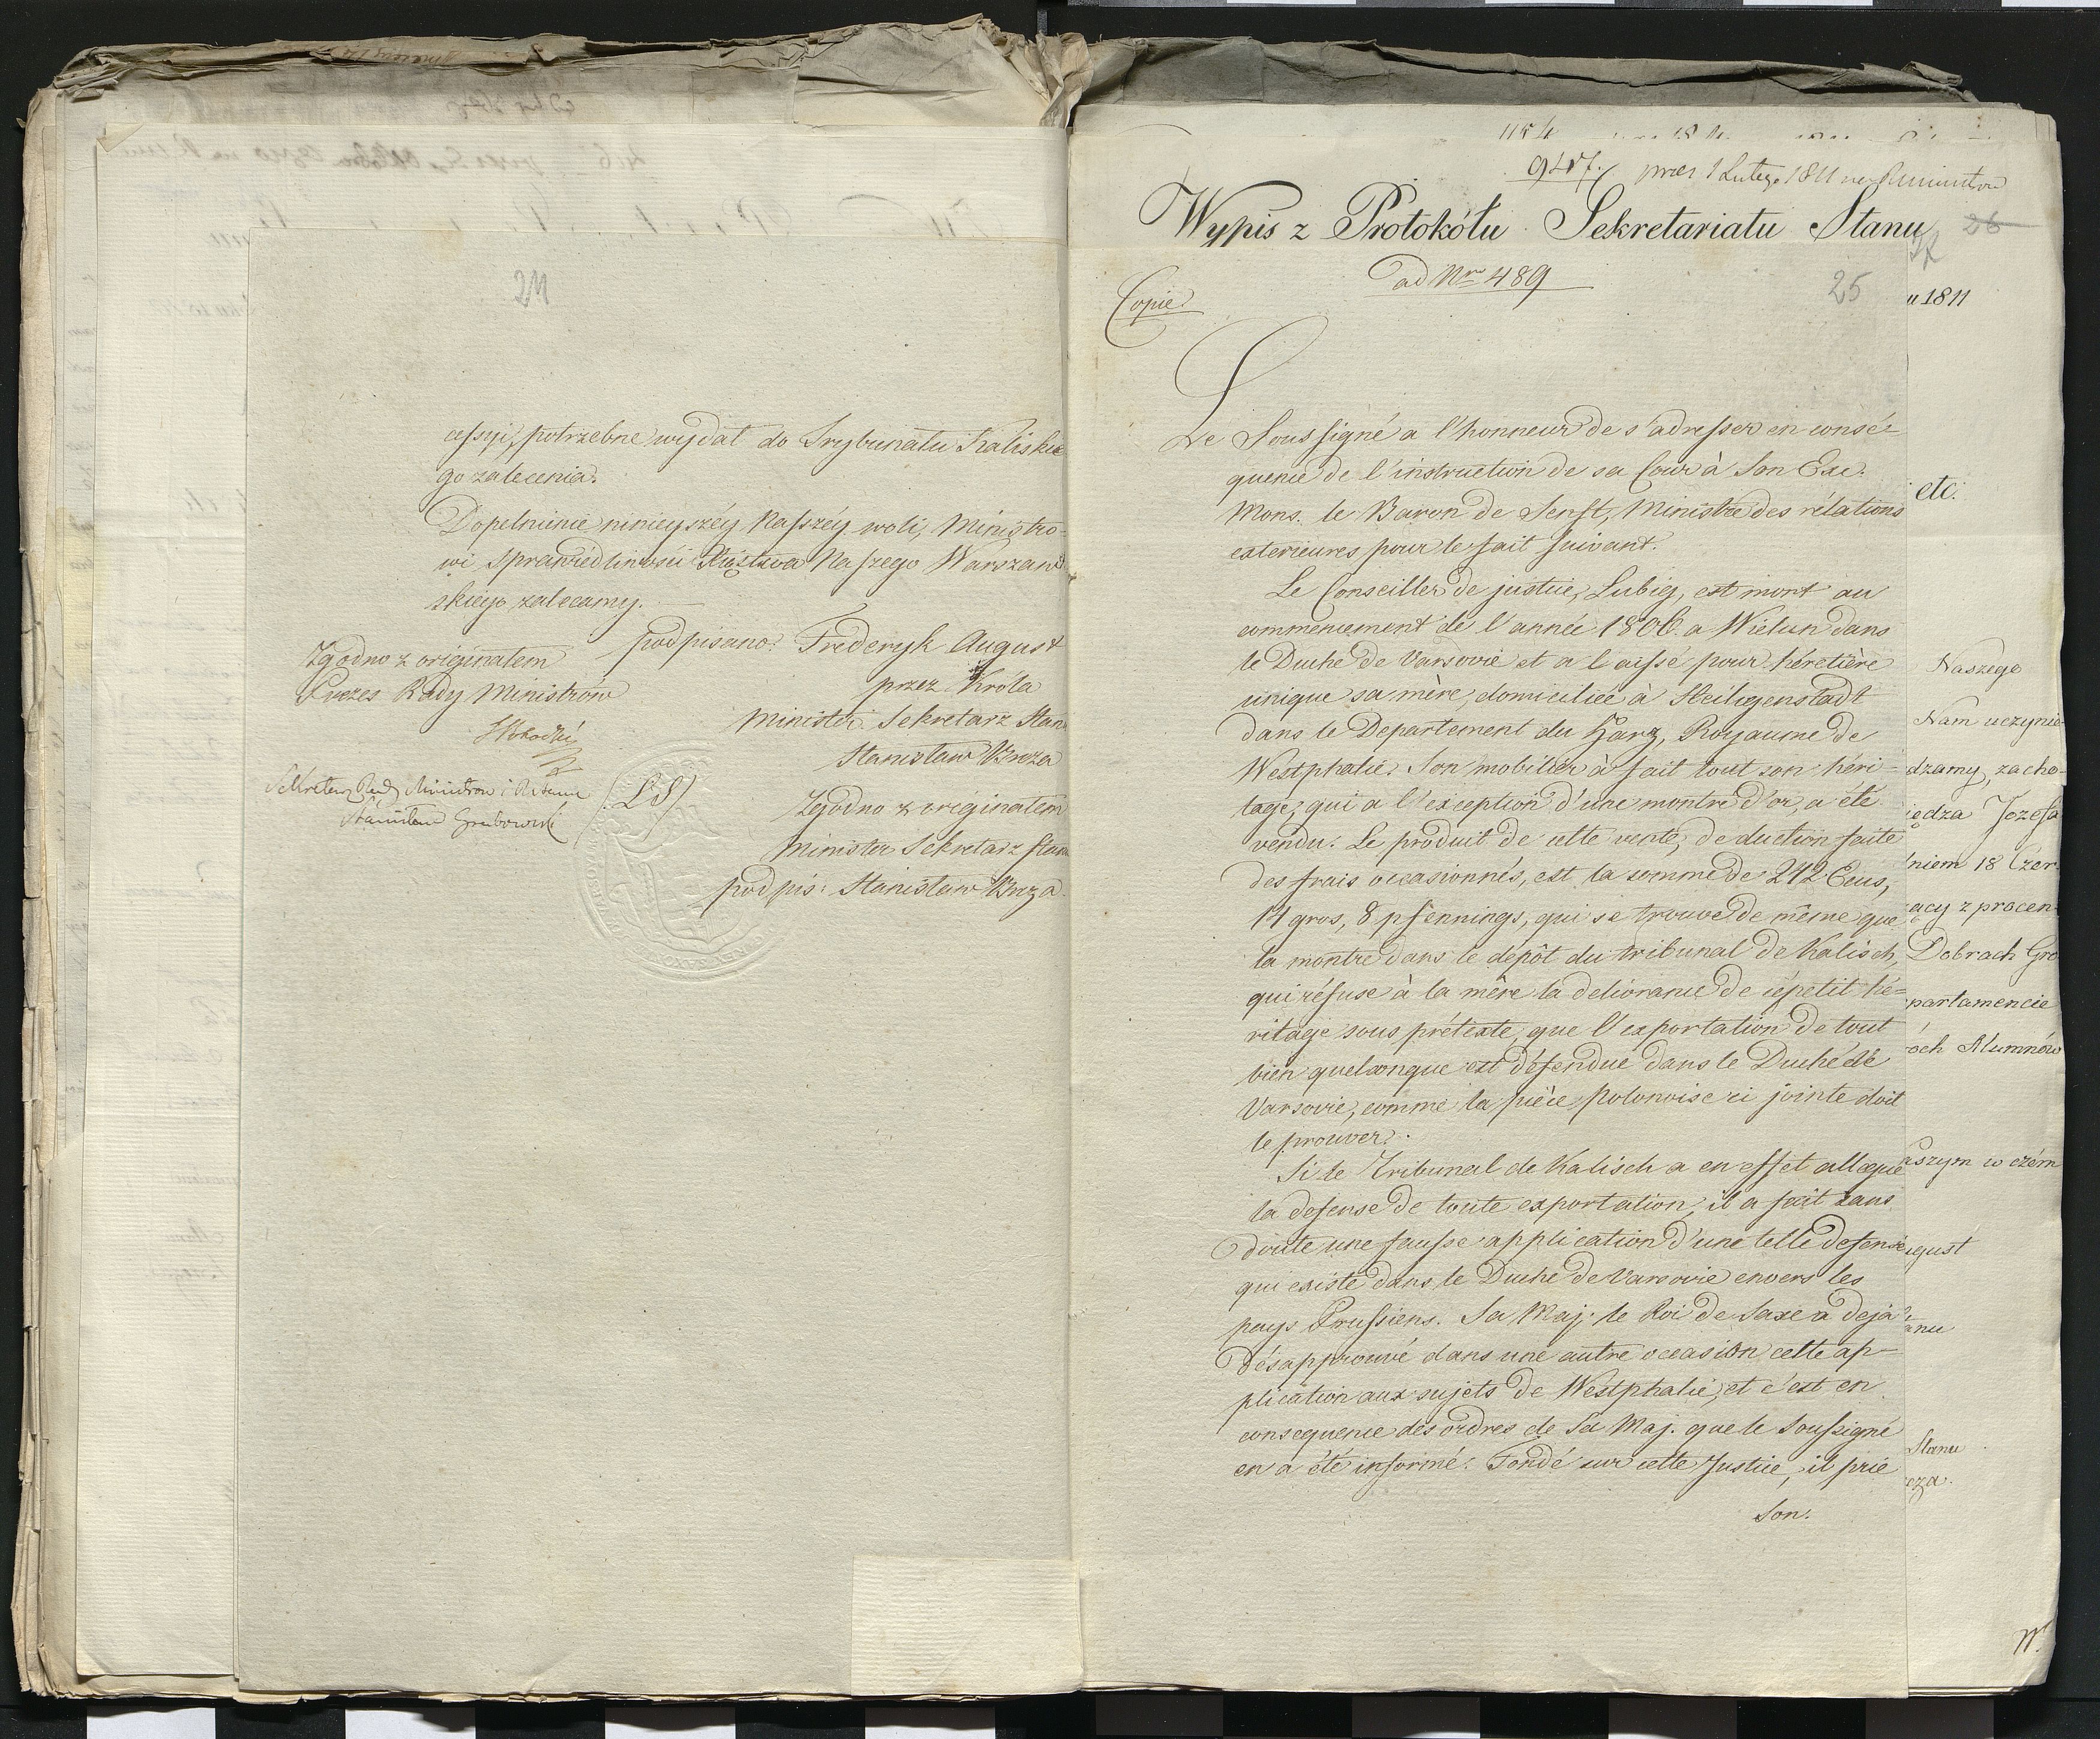 24
cessyi, potrzebne wydał do Trybunału Kaliskie
go zalecenia.
Dopełnienie ninieyszéy Naszéy woli, Ministro-
wi Sprawiedliwości Xięstwa Naszego Warszaw
skiego zalecamy.
podpisano: Frederyk August
przez Króla
Minister Sekretarz Stanu
Stanisław Breza
Zgodno z originałem
Minister Sekretarz Stanu
podpis: Stanisław Breza
Zgodno z originałem
Prezes Rady Ministrów
Sekretarz Rady Ministrow i R. Stanu
Stanisław Grabowski
(LS)
947. prez 1 Lutego 1811
Wypis z Protokółu Sekretariatu Stanu
26
ad Nro 489
25
Copie
Le Soussigné a l'honneur de s'adresser en consé-
quence de l'instruction de sa Cour à Son Exc.
Mons. le Baron de Senft, Ministre des rélations
exterieures pour le fait suivant.
Le Conseiller de justice, Lubig, est mort au
commencement de l'année 1806. a Wielun dans
le Duché de Varsovie et a laissé pour héretière
unique sa mère, domiciliée à Heiligenstadt
dans le Departement du Harz, Royaume de
Westphalie. Son mobilier a fait tout son héri-
tage, qui a l'exception d'une montre d'or, a été
vendu. Le produit de cette vente, deduction faite
des frais occasionnés, est la somme de 242 Ecus,
14 gros, 8 pfennings, qui se trouve de même que
la montre dans le depôt du tribunal de Kalisch,
qui réfuse à la mère la delivrance de ce petit hé-
ritage sous prétexte, que l'exportation de tout
bien quelconque est défendue dans le Duché de
Varsovie, comme la pièce polonoise ci jointe doit
le prouver.
Si le Tribunal de Kalisch a en effet allegué
la defense de toute exportation, il a fait sans
doute une fausse application d'une telle defense
qui existe dans le Duché de Varsovie envers les
pays Prussiens. Sa Maj. le Roi de Saxe a deja
désapprouvé dans une autre occasion cette ap-
plication aux sujets de Westphalie, et c'est en
consequence des ordres de Sa Maj. que le soussigné
en a été informé. Fondé sur cette Justice, il prie
Son.
u 1811
etc.
Naszego
Nam uczynie-
dzamy, zacho-
iędza Jozefa
niem 18 Czer.
ący z procen-
Dobrach Gro
partamencie
óch Alumnów
aszym w czém
ugust
anu
Stanu
eza.